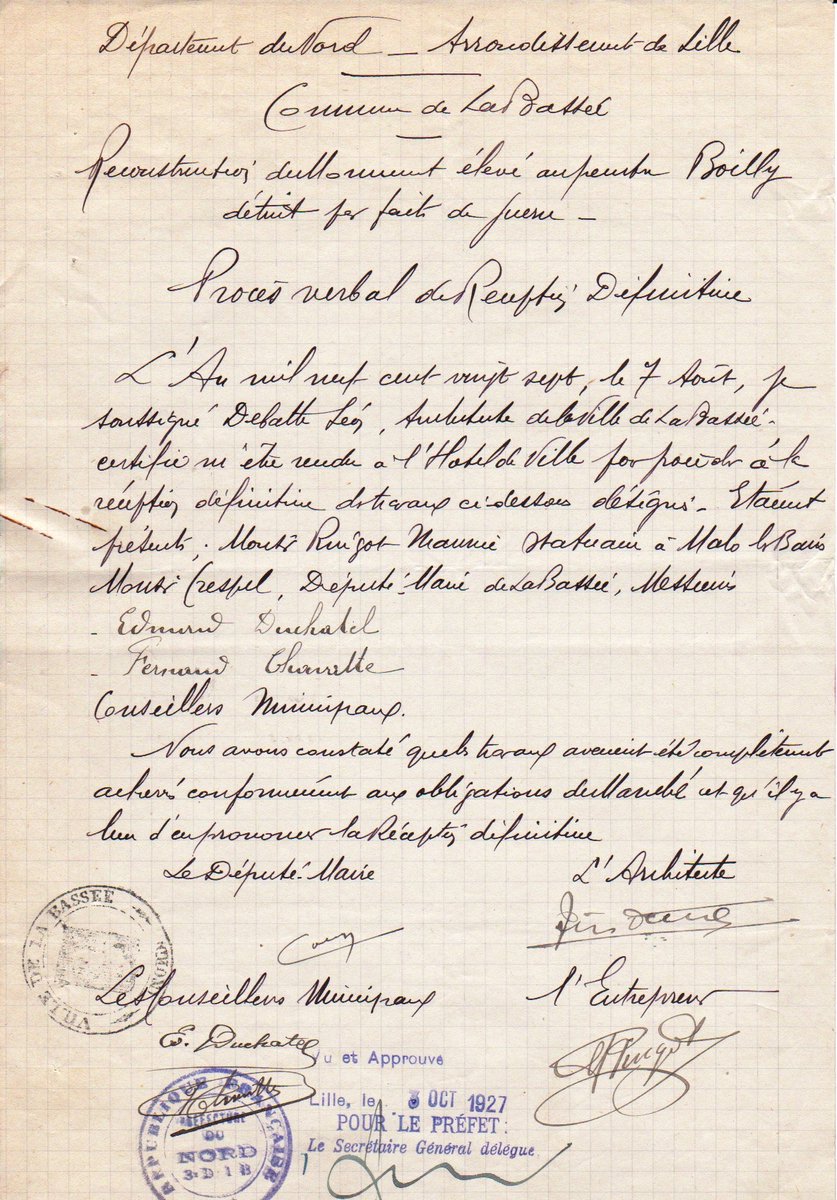 Département du Nord _ Arrondissement de Lille
Commune de La Bassée
Reconstruction du Monument élevé au peintre Boilly
détruit par faits de guerre _
Procès verbal de Réception Définitive
L'An mil neuf cent vingt sept, le 7 Août, je
soussigné Léon, Architecte de la Ville de La Bassée
certifie m'être rendu à l'Hotel de Ville pour procéder à la
réception définitive des travaux ci-dessous désignés - Etaient
présents ; Monsr Ringot Maurice statuaire à Malo les Bains
Monsr Crespel, Député-Maire de La Bassée, Messieurs
- Edmond Duchatel
- Fernand
Conseillers Municipaux.
Nous avons constaté que les travaux avaient été complètement
achevés conformément aux obligations du Marché et qu'il y a
lieu d'en prononcer la Réception définitive
Le Député-Maire L'Architecte
VILLE DE LA BASSÉE (NORD)
Les Conseillers Municipaux l'Entrepreneur
E. Duchatel
Vu et Approuvé
Ringot
Lille, le 3 OCT 1927
POUR LE PRÉFET:
Le Secrétaire Général délégué
RÉPUBLIQUE FRANÇAISE
PRÉFECTURE
DU
NORD
3-DIB